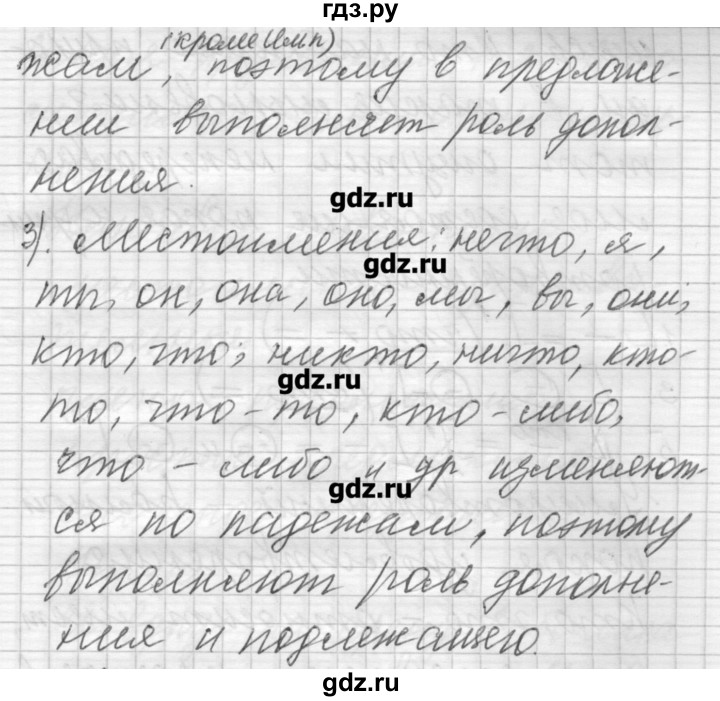 гдз.ру
(кроме Им.п)
жам, поэтому в предложе-
нии выполняет роль допол-
нения.
gdz.ru
3). Местоимения: нечто, я,
gdz.ru
ты, он, она, оно, мы, вы, они;
кто, что; никто, ничто, кто-
gdz.ru
то, что-то, кто-либо,
что-либо и др изменяют-
gdz.ru
ся по падежам, поэтому
выполняют роль дополне-
ния и подлежащего.
gdz.ru